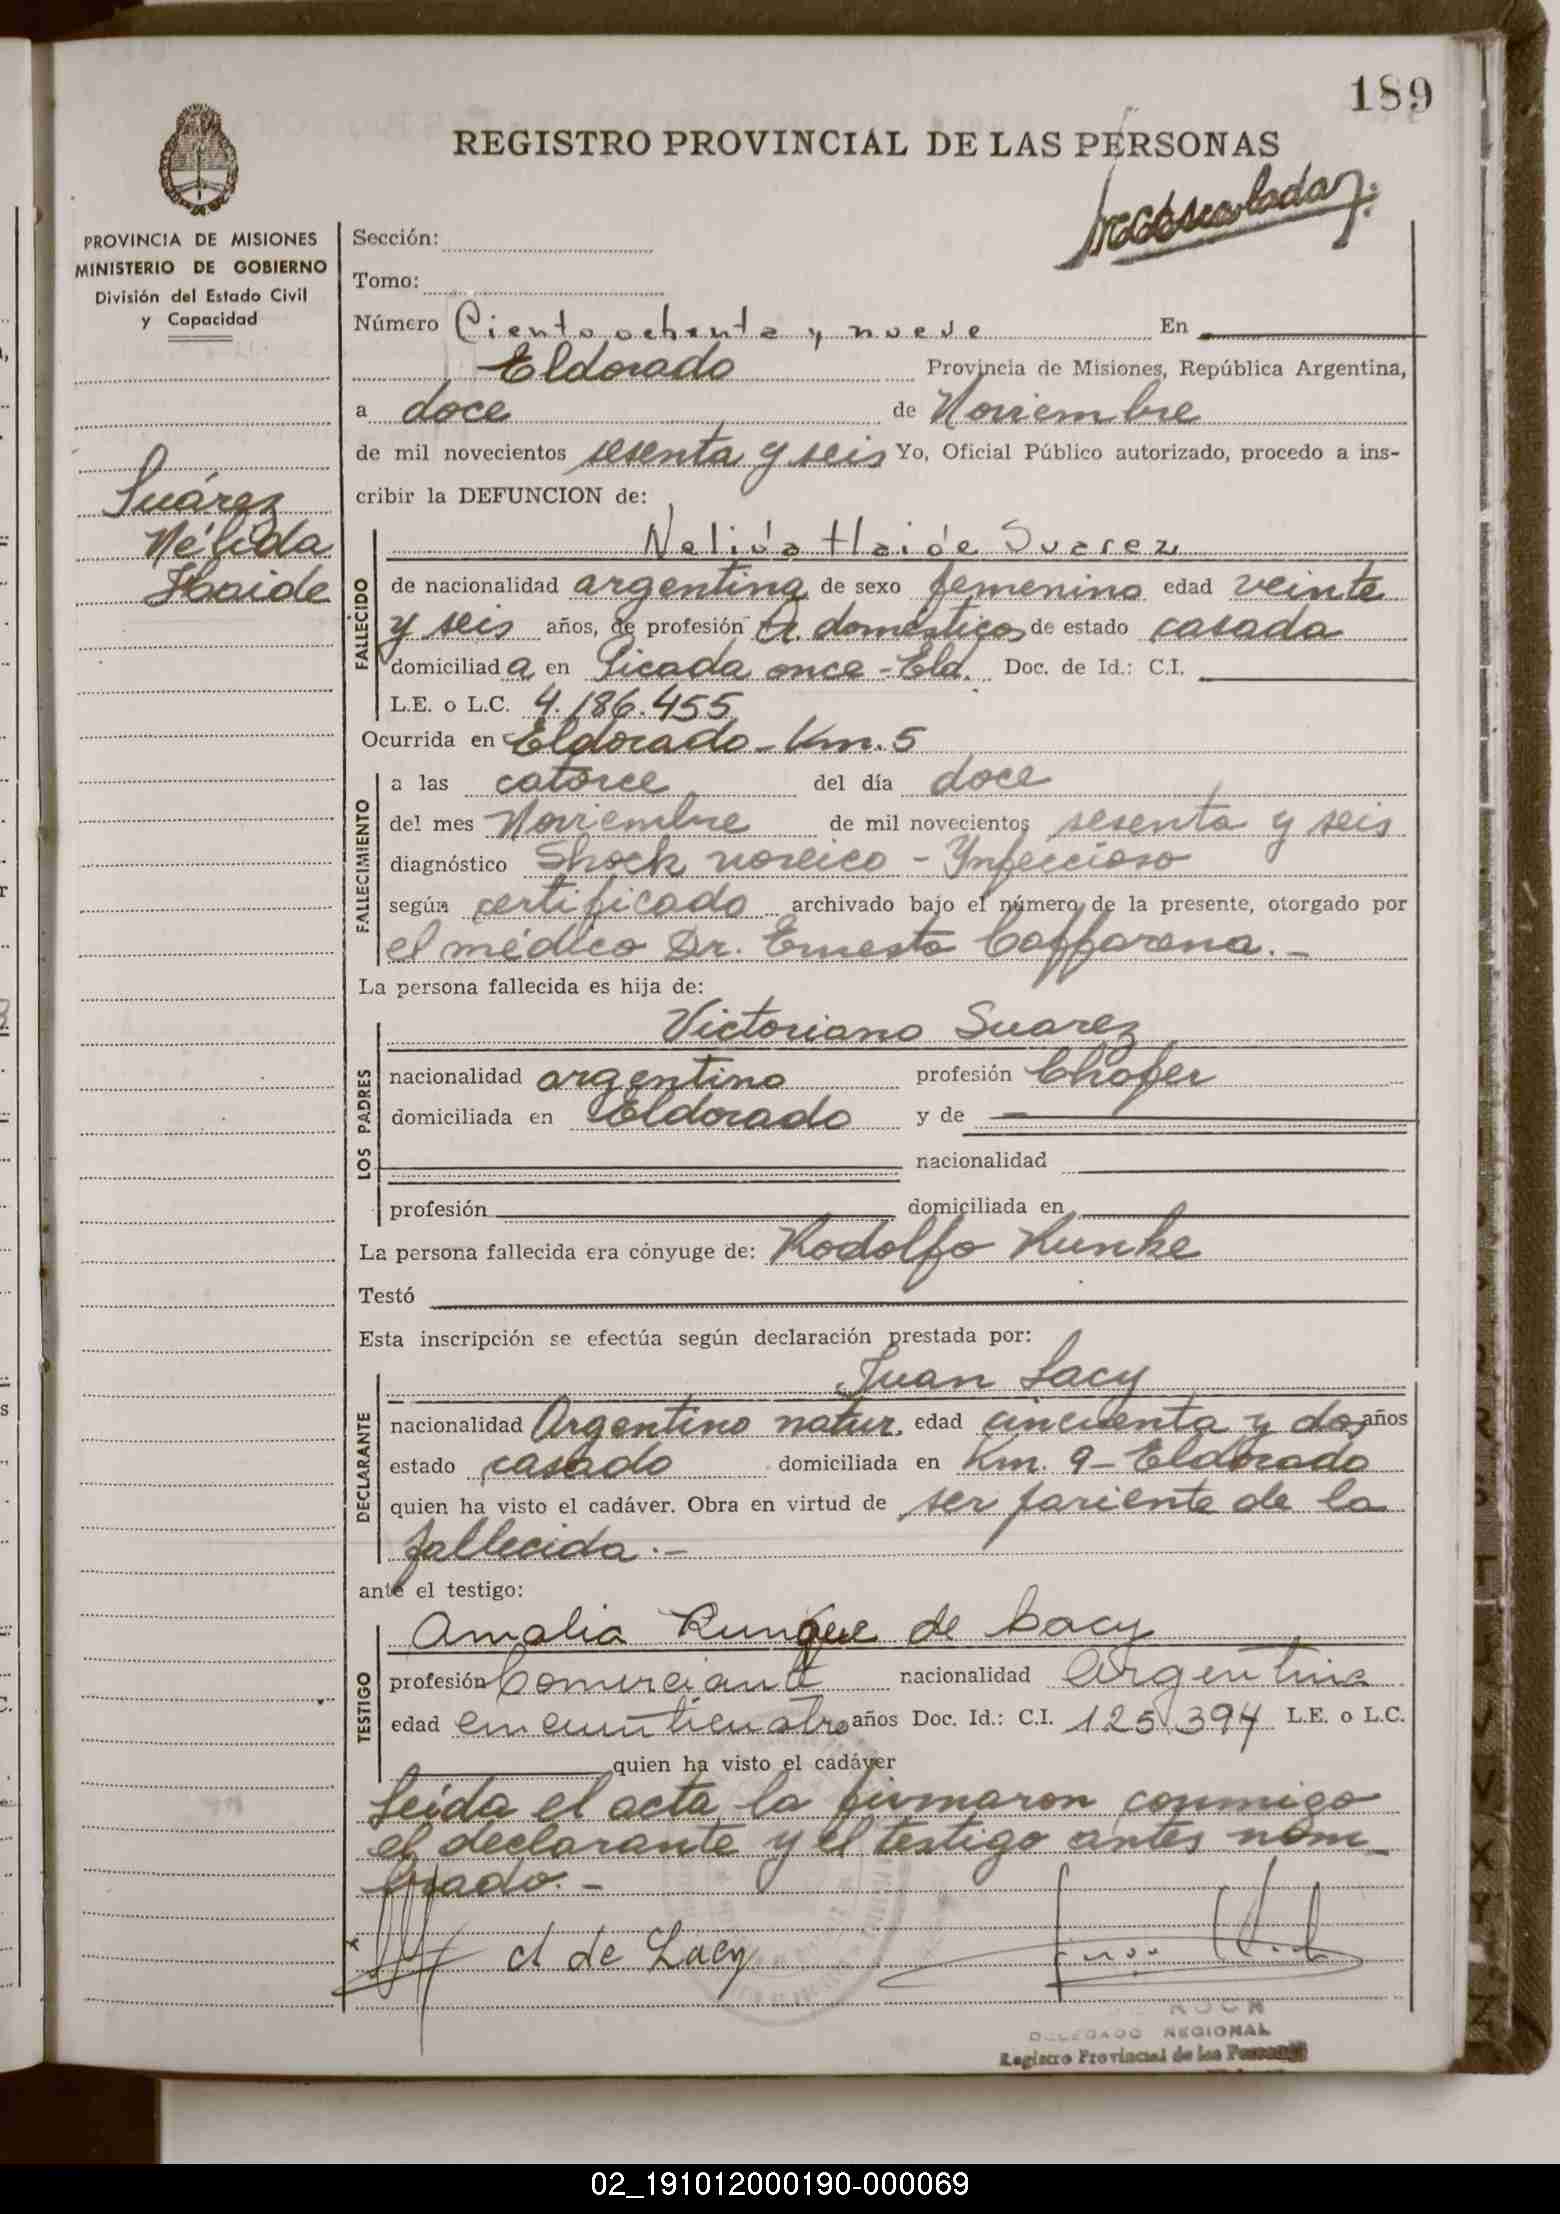 189
REGISTRO PROVINCIAL DE LAS PERSONAS
PROVINCIA DE MISIONES
MINISTERIO DE GOBIERNO
División del Estado Civil
y Capacidad
Suárez
Nélida
Haide
Sección:
Tomo:
Número Ciento ochenta y nueve En
Eldorado Provincia de Misiones, República Argentina,
a doce de Noviembre
de mil novecientos sesenta y seis Yo, Oficial Público autorizado, procedo a ins-
cribir la DEFUNCION de:
FALLECIDO
Nelida Haide Suarez
de nacionalidad argentina de sexo femenino edad veinte
y seis años, de profesión Q. domésticos de estado casada
domiciliada en Picada once - Eld. Doc. de Id.: C.I.
L.E. o L.C. 4.186.455
Ocurrida en Eldorado - Km. 5
FALLECIMIENTO
a las catorce del día doce
del mes Noviembre de mil novecientos sesenta y seis
diagnóstico Shock - Infeccioso
según certificado archivado bajo el número de la presente, otorgado por
el médico Dr. Ernesto Caffarena. -
La persona fallecida es hija de:
LOS PADRES
Victoriano Suarez
nacionalidad argentino profesión Chofer
domiciliada en Eldorado y de
nacionalidad
profesión domiciliada en
La persona fallecida era cónyuge de: Rodolfo Kunke
Testó
Esta inscripción se efectúa según declaración prestada por:
DECLARANTE
Juan Lacy
nacionalidad Argentino natur. edad cincuenta y dos años
estado casado domiciliada en Km. 9 - Eldorado
quien ha visto el cadáver. Obra en virtud de ser pariente de la
fallecida. -
ante el testigo:
TESTIGO
Amalia de Lacy
profesión Comerciante nacionalidad Argentina
edad cincuenticuatro años Doc. Id.: C.I. 125.394 L.E. o L.C.
quien ha visto el cadáver
Leída el acta, la firmaron conmigo
el declarante y el testigo antes nom-
brado. -
A de Lacy
KOCH
DELEGADO REGIONAL
Registro Provincial de las Personas
02_191012000190-000069